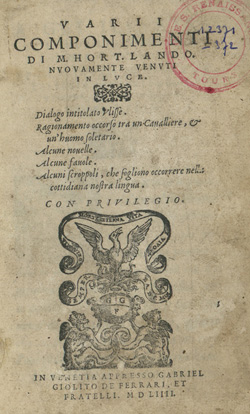 VARII
COMPONIMENTI
DI M. HORT. LANDO.
NVOVAMENTE VENVTI
IN LVCE.
Dialogo intitolato Vlisse.
Ragionamento occorso tra un Caualliere, &
un' huomo soletario.
Alcune nouelle.
Alcune fauole.
Alcuni scroppoli, che sogliono occorrere nella
cottidiana nostra lingua.
CON PRIVILEGIO.
IN VENETIA APPRESSO GABRIEL
GIOLITO DE FERRARI, ET
FRATELLI. MDLIIII.